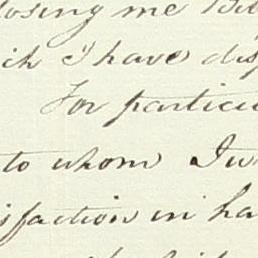 losing me Bil
ich I have dis
For particu
to whom I w
isfaction in ha